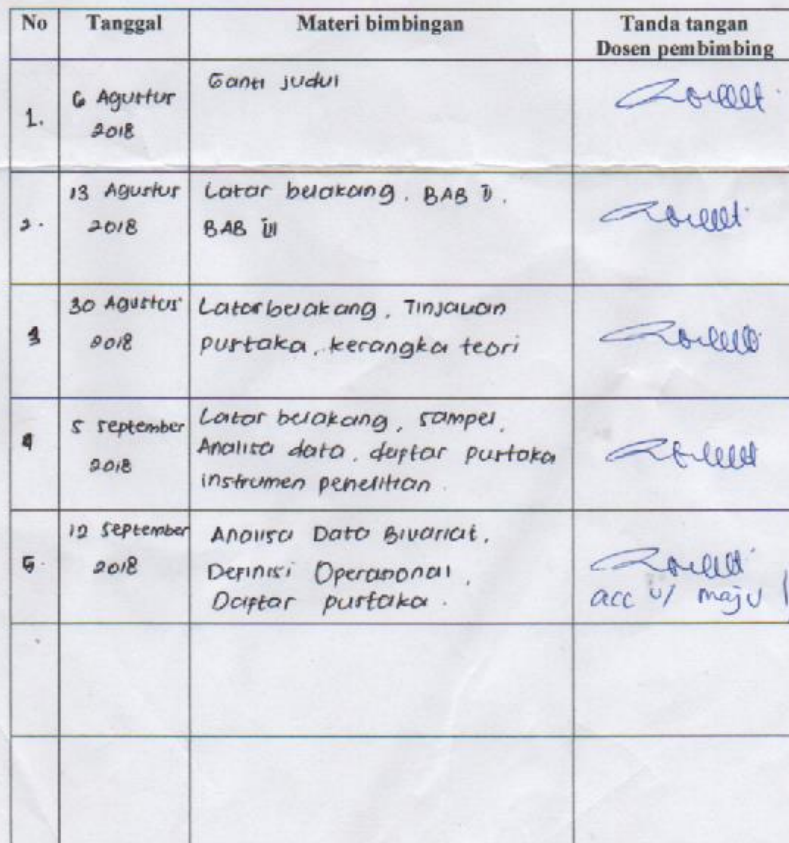 No Tanggal Materi bimbingan Tanda tangan
Dosen pembimbing
1. 6 Agustus Ganti judul
2018
2. 13 Agustus Latar belakang, BAB II,
2018 BAB III
3 30 Agustus Latar belakang, Tinjauan
2018 pustaka, kerangka teori
4 5 september Latar belakang, sampel,
2018 Analisa data, daftar pustaka
instrumen penelitian.
5. 12 September Analisa Data Bivariat,
2018 Definisi Operasional,
Daftar pustaka.
acc u/ maju